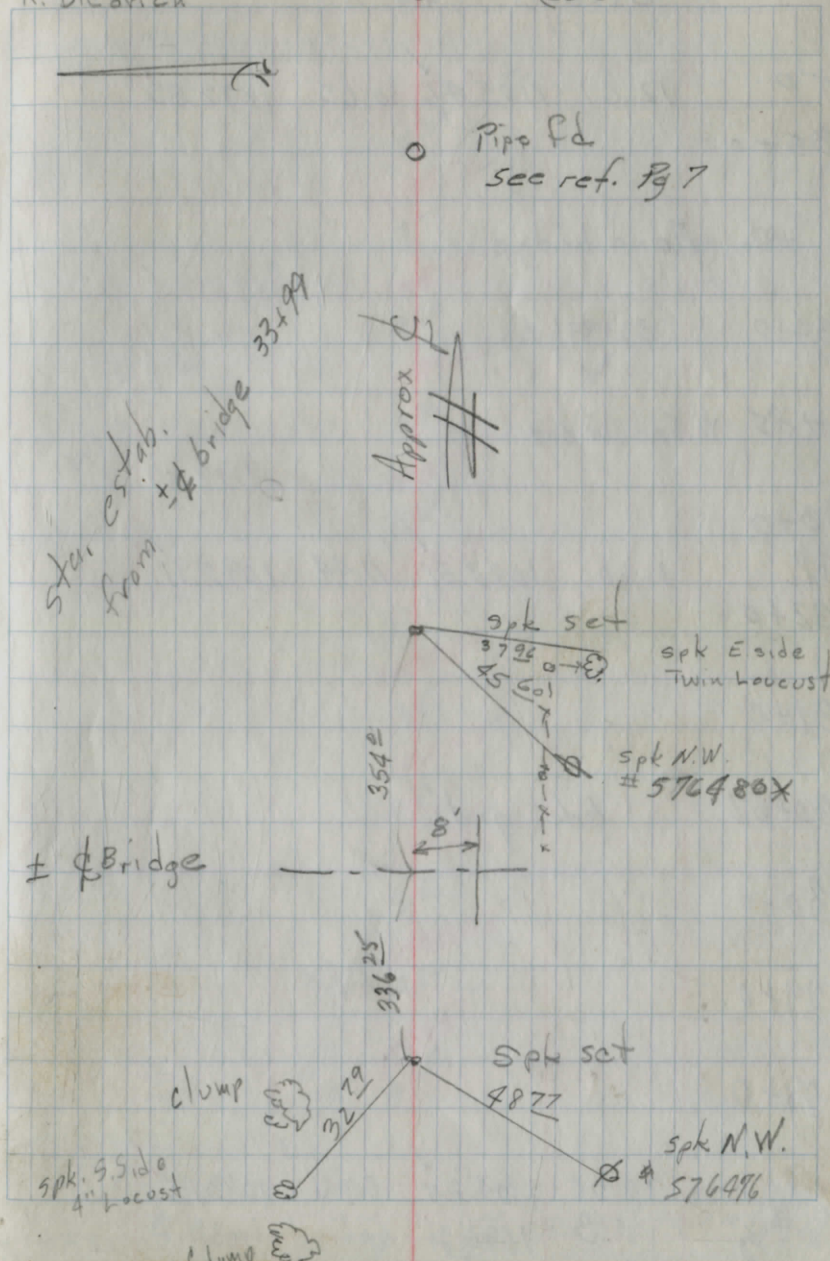 Pipe fd
see ref. Pg 7
Sta. estab.
from ± ℄ bridge 33+99
Approx ℄
spk set
37 96
45 60
spk E side
Twin Loucust
spk N.W.
# 576480X
354
8'
± ℄ Bridge
336 25
Spk set
clump
32 79
48 77
spk. S. Side
4" Locust
spk N.W.
# 576476
Clump